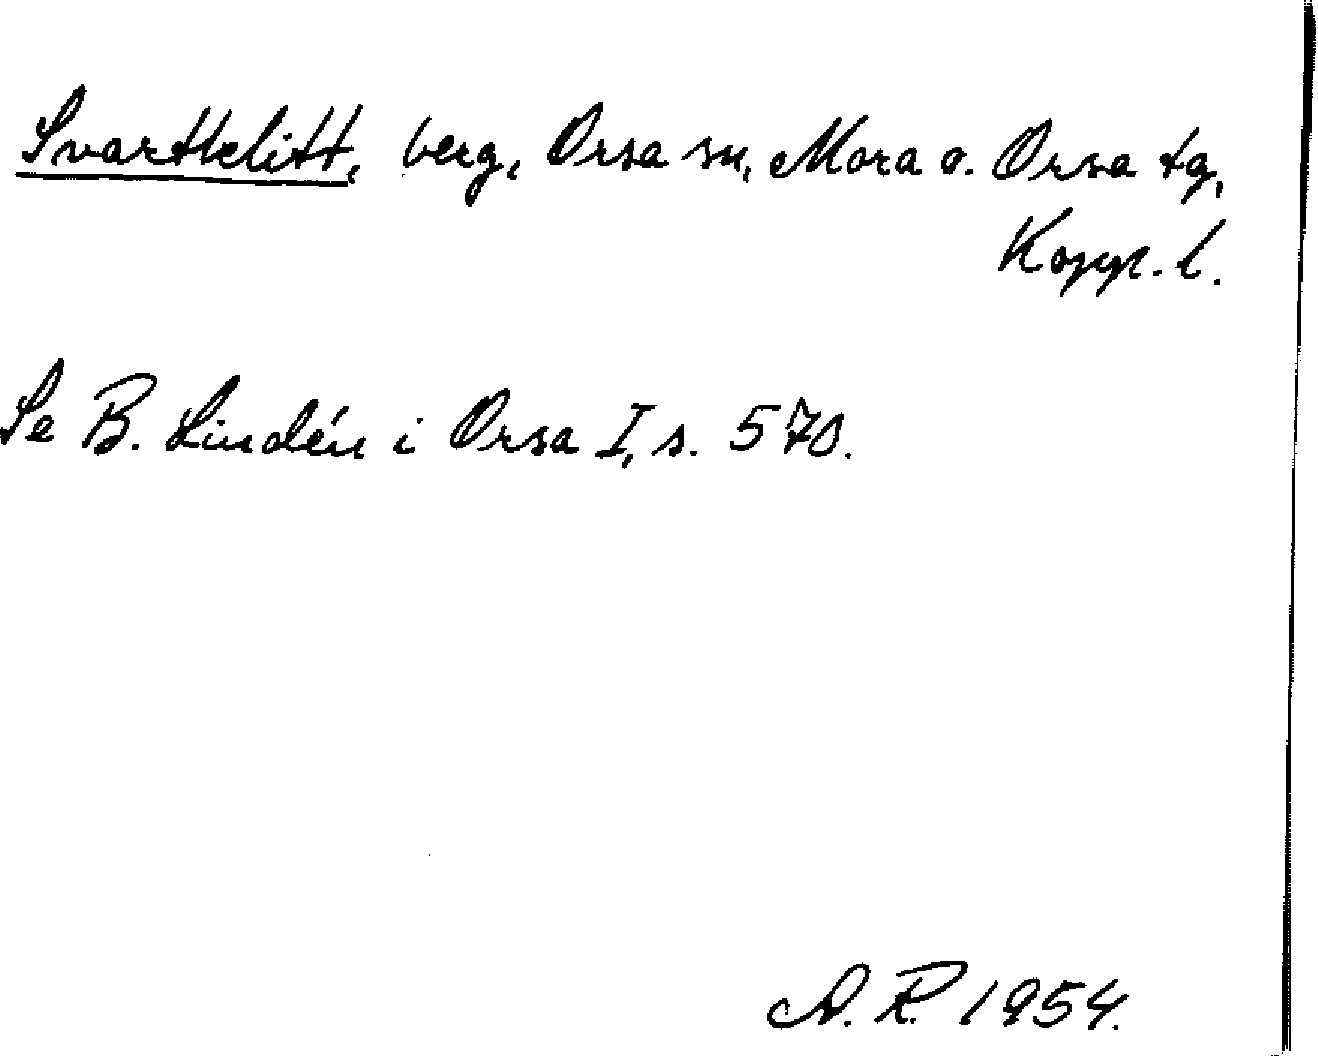 Svartklitt, berg, Orsa sn, Mora o. Orsa tg,
Kopp. l.
Se B. Lindén i Orsa I, s. 570.
N. R. 1954.